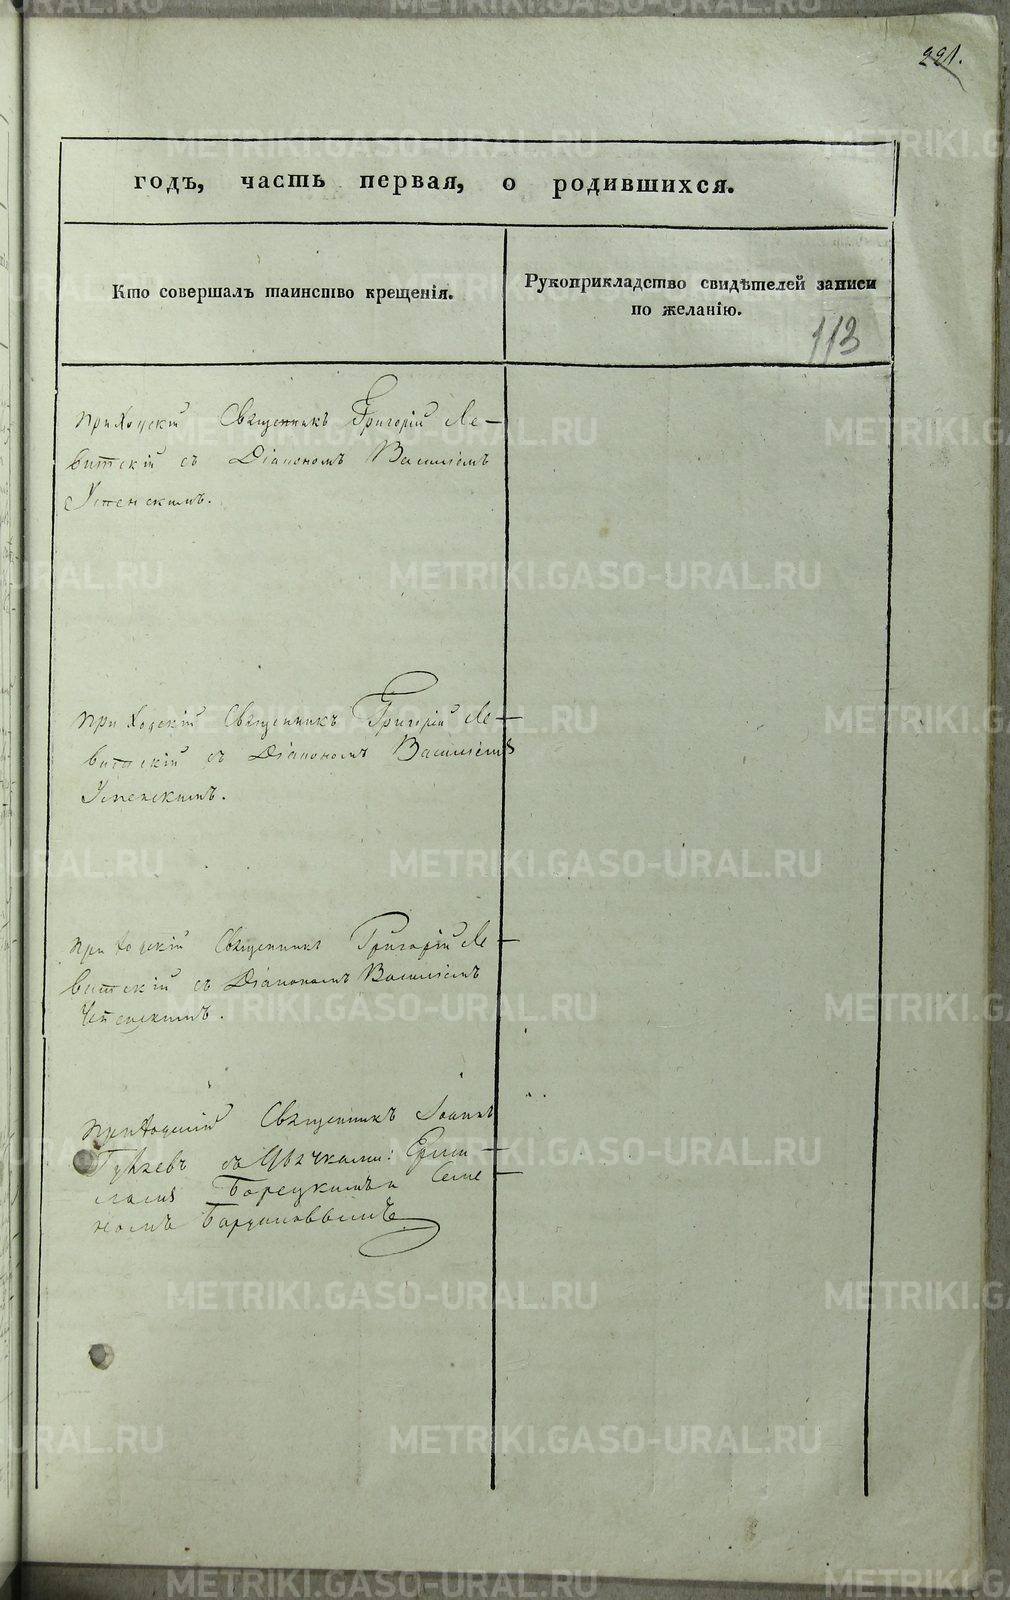 221.
годъ, часть первая, о родившихся.
Кто совершалъ таинство крещенія.
Рукоприкладство свидѣтелей записи
по желанію.
113
Приходскій Священникъ Григорій Ле-
витскій съ Діакономъ Василіемъ
Успенскимъ.
Приходскій Священникъ Григорій Ле-
витскій съ Діакономъ Василіемъ
Успенскимъ.
Приходскій Священникъ Григорій Ле-
витскій съ Діакономъ Василіемъ
Успенскимъ.
Приходскій Священникъ Іоаннъ
съ Дьячками:
Борецкимъ и Семе-
номъ
METRIKI.GASO-URAL.RU